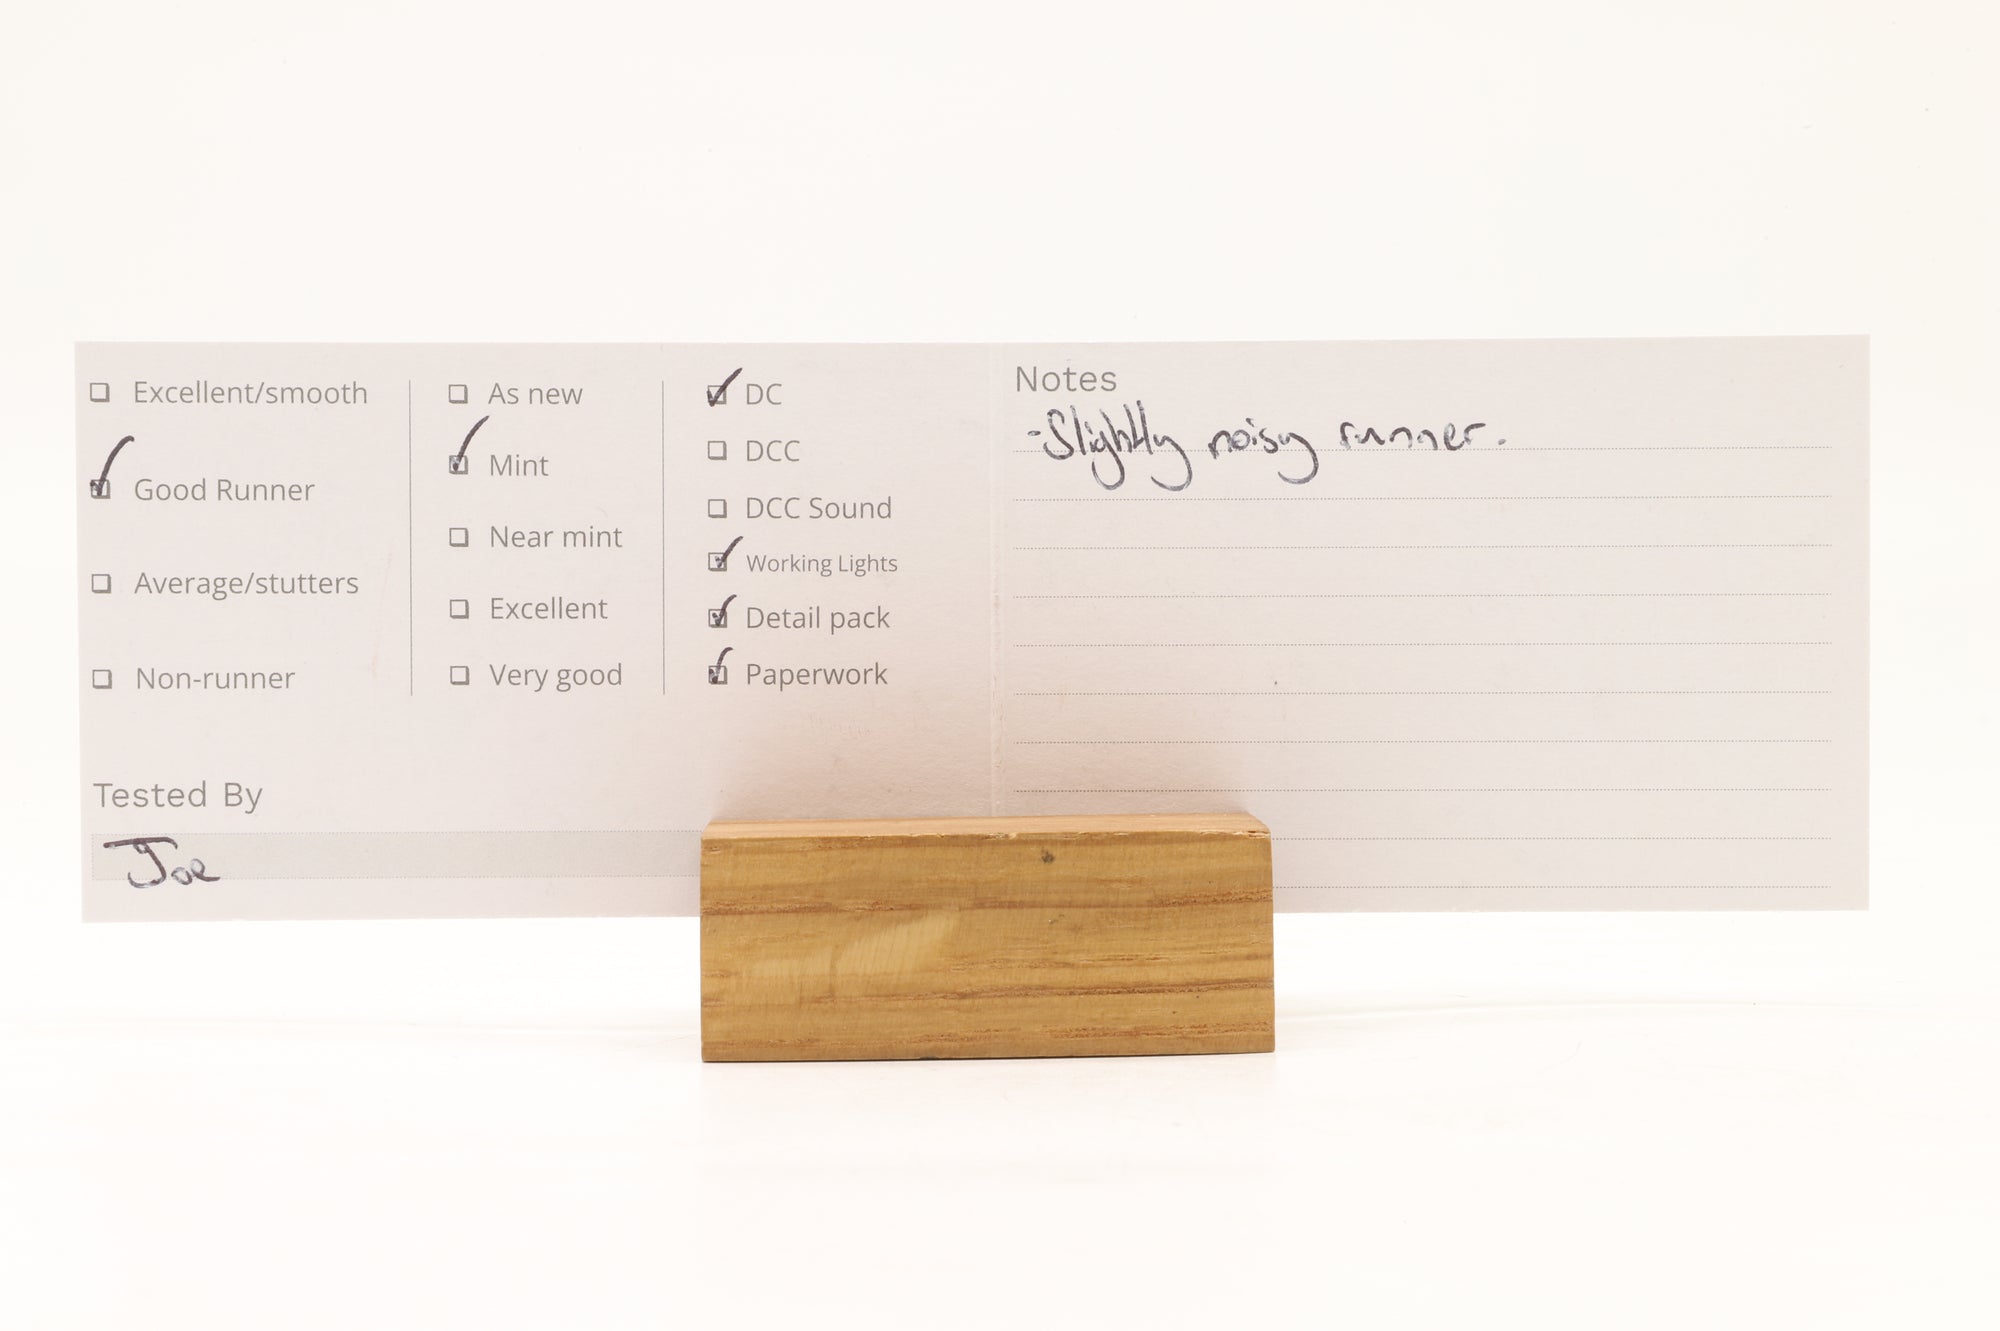 Excellent/smooth
Good Runner
Average/stutters
Non-runner
As new
Mint
Near mint
Excellent
Very good
DC
DCC
DCC Sound
Working Lights
Detail pack
Paperwork
Tested By
Joe
Notes
-Slightly noisy runner.